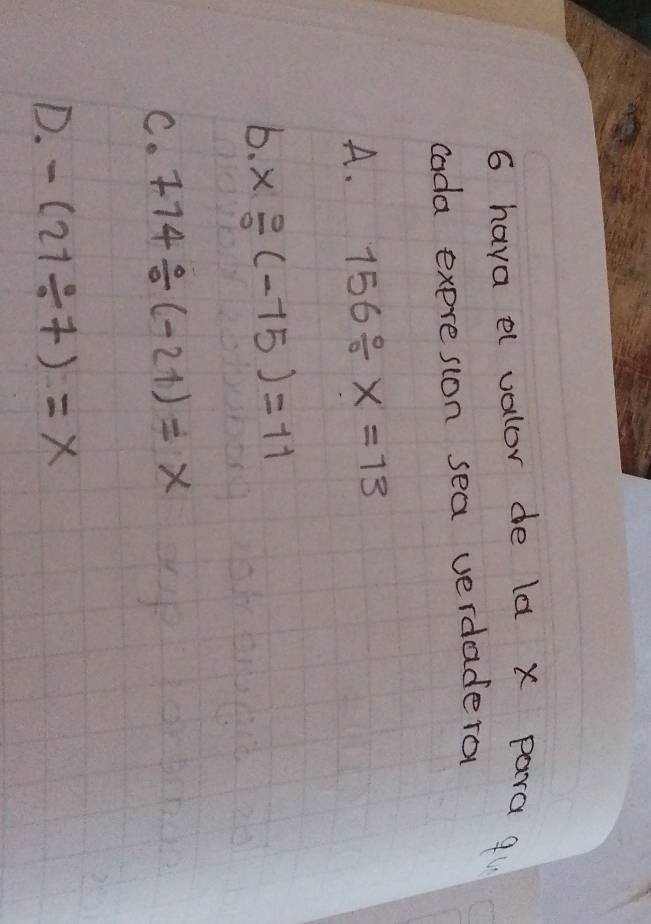 6 haya el valor de la x para
cada expresion sea verdadera
A. 156 ÷ x = 13
b. x ÷ (-15) = 11
C. 714 ÷ (-21) = x
D. - (21 ÷ 7) = x